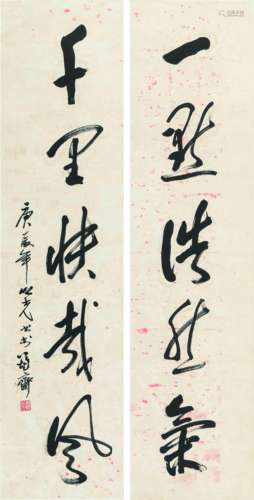 一點浩然氣
千里快哉風
庚辰年